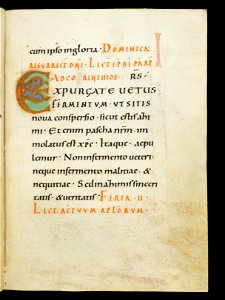 cum ipso in gloria. DOMINICA
RESURRECT DNI. LECT EPI PAVLI
AD CORINTHIOS. FRS.
EXPURGATE VETUS
FERMENTUM. UT SITIS
nova conspersio. sicut estis azi
mi. Et enim pascha nrm. im
molatus est xpc. Itaque. aepu
lemur. Non in fermento veteri.
neque in fermento malitiae. &
nequitiae. Sed in azimis sinceri
tatis. & veritatis. FERIA. II.
LEC ACTUUM APLORUM.